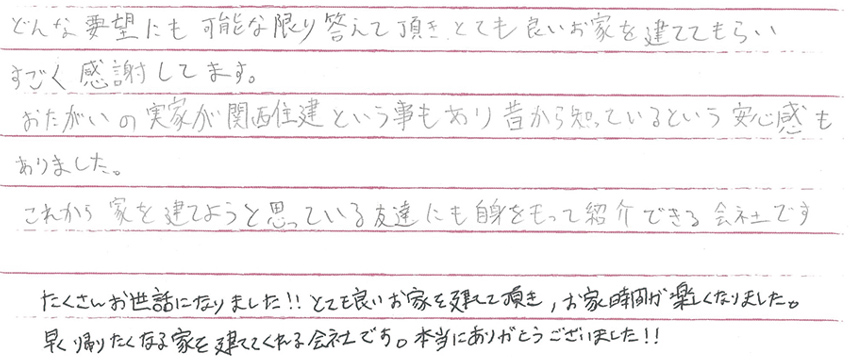 どんな要望にも可能な限り答えて頂きとても良いお家を建ててもらい
すごく感謝してます。
おたがいの実家が関西住建という事もあり昔から知っているという安心感も
ありました。
これから家を建てようと思っている友達にも自身をもって紹介できる会社です
たくさんお世話になりました!!とても良いお家を建てて頂き,お家時間が楽しくなりました。
早く帰りたくなる家を建ててくれる会社です。本当にありがとうございました!!